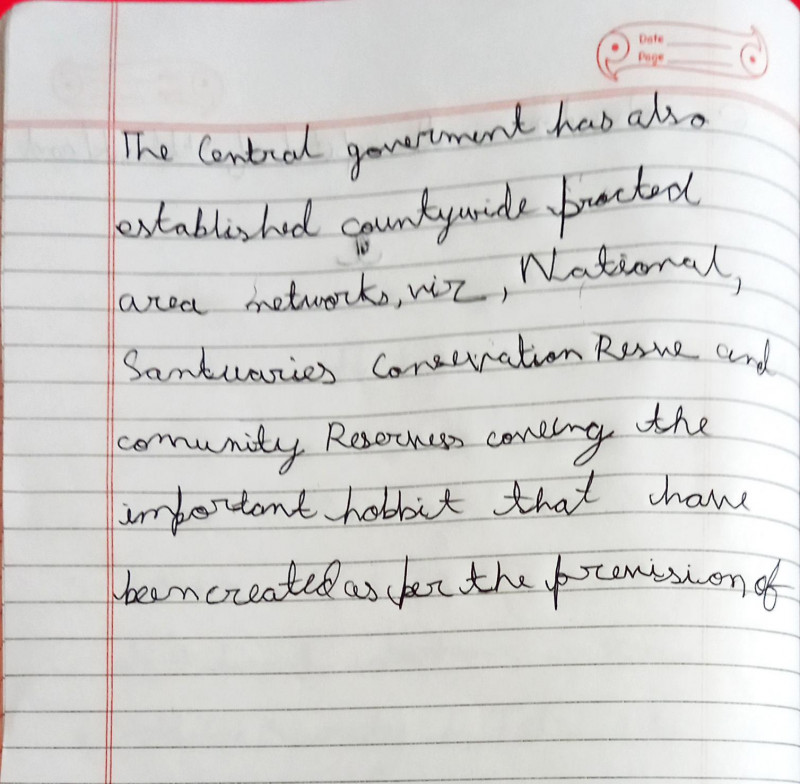 Date
Page
The Central goverment has also
established countywide procted
area networks, viz, National,
Santuaries Conservation Resve and
comunity Reserness coveeng the
important hobbit that have
been created as per the prenision of